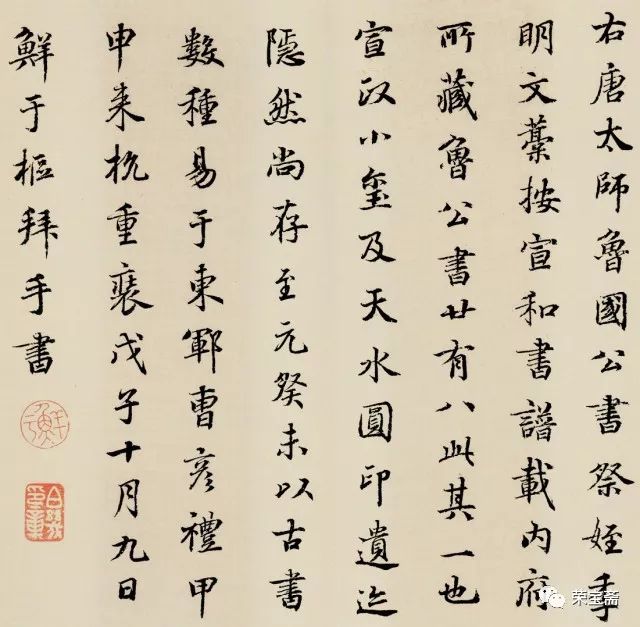 右唐太師魯國公書祭姪季
明文藁按宣和書譜載內府
所藏魯公書廿有八此其一也
宣政小璽及天水圓印遺迹
隱然尚存至元癸未以古書
數種易于東鄆曹彦禮甲
申来杭重裝戊子十月九日
鮮于樞拜手書
鮮于
荣宝斋